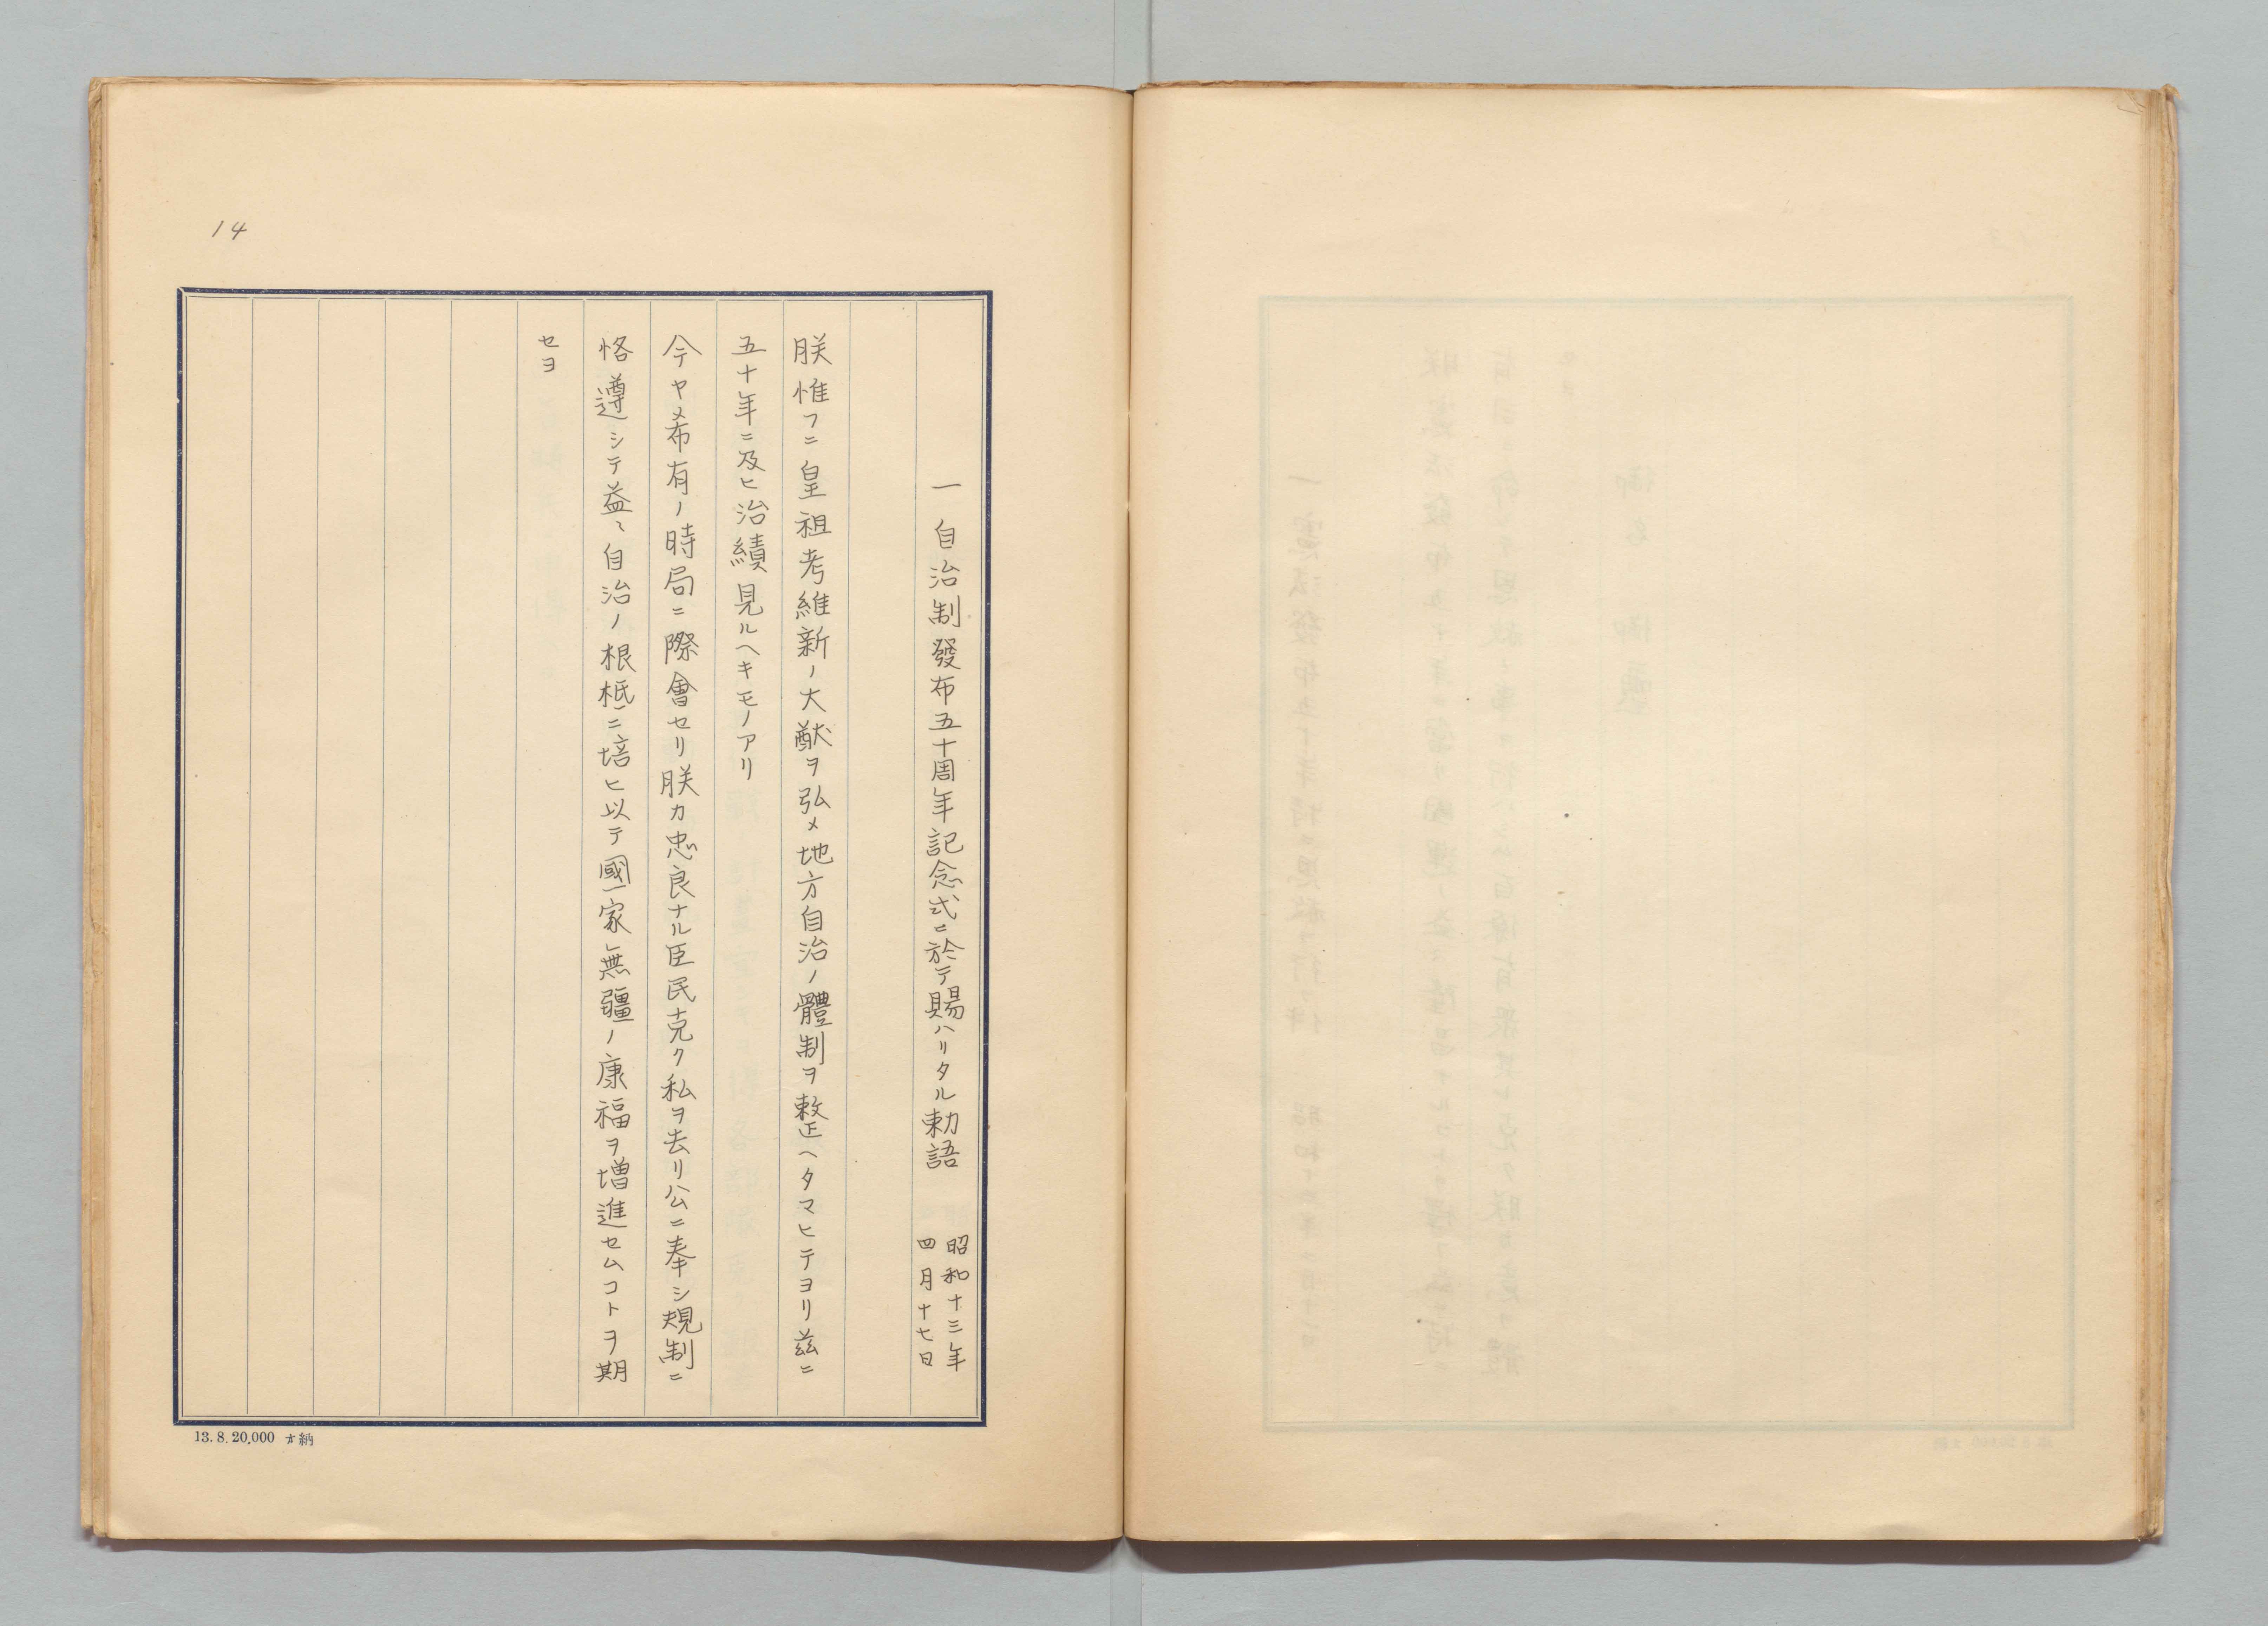 14
一自治制發布五十周年記念式ニ於テ賜ハリタル勅語
昭和十三年
四月十七日
朕惟フニ皇祖考維新ノ大猷ヲ弘メ地方自治ノ體制ヲ整ヘタマヒテヨリ茲ニ
五十年ニ及ヒ治績見ルヘキモノアリ
今ヤ希有ノ時局ニ際會セリ朕カ忠良ナル臣民克ク私ヲ去リ公ニ奉シ規制ニ
恪遵シテ益〻自治ノ根柢ニ培ヒ以テ國家無疆ノ康福ヲ増進セムコトヲ期
セヨ
13.8.20,000 納